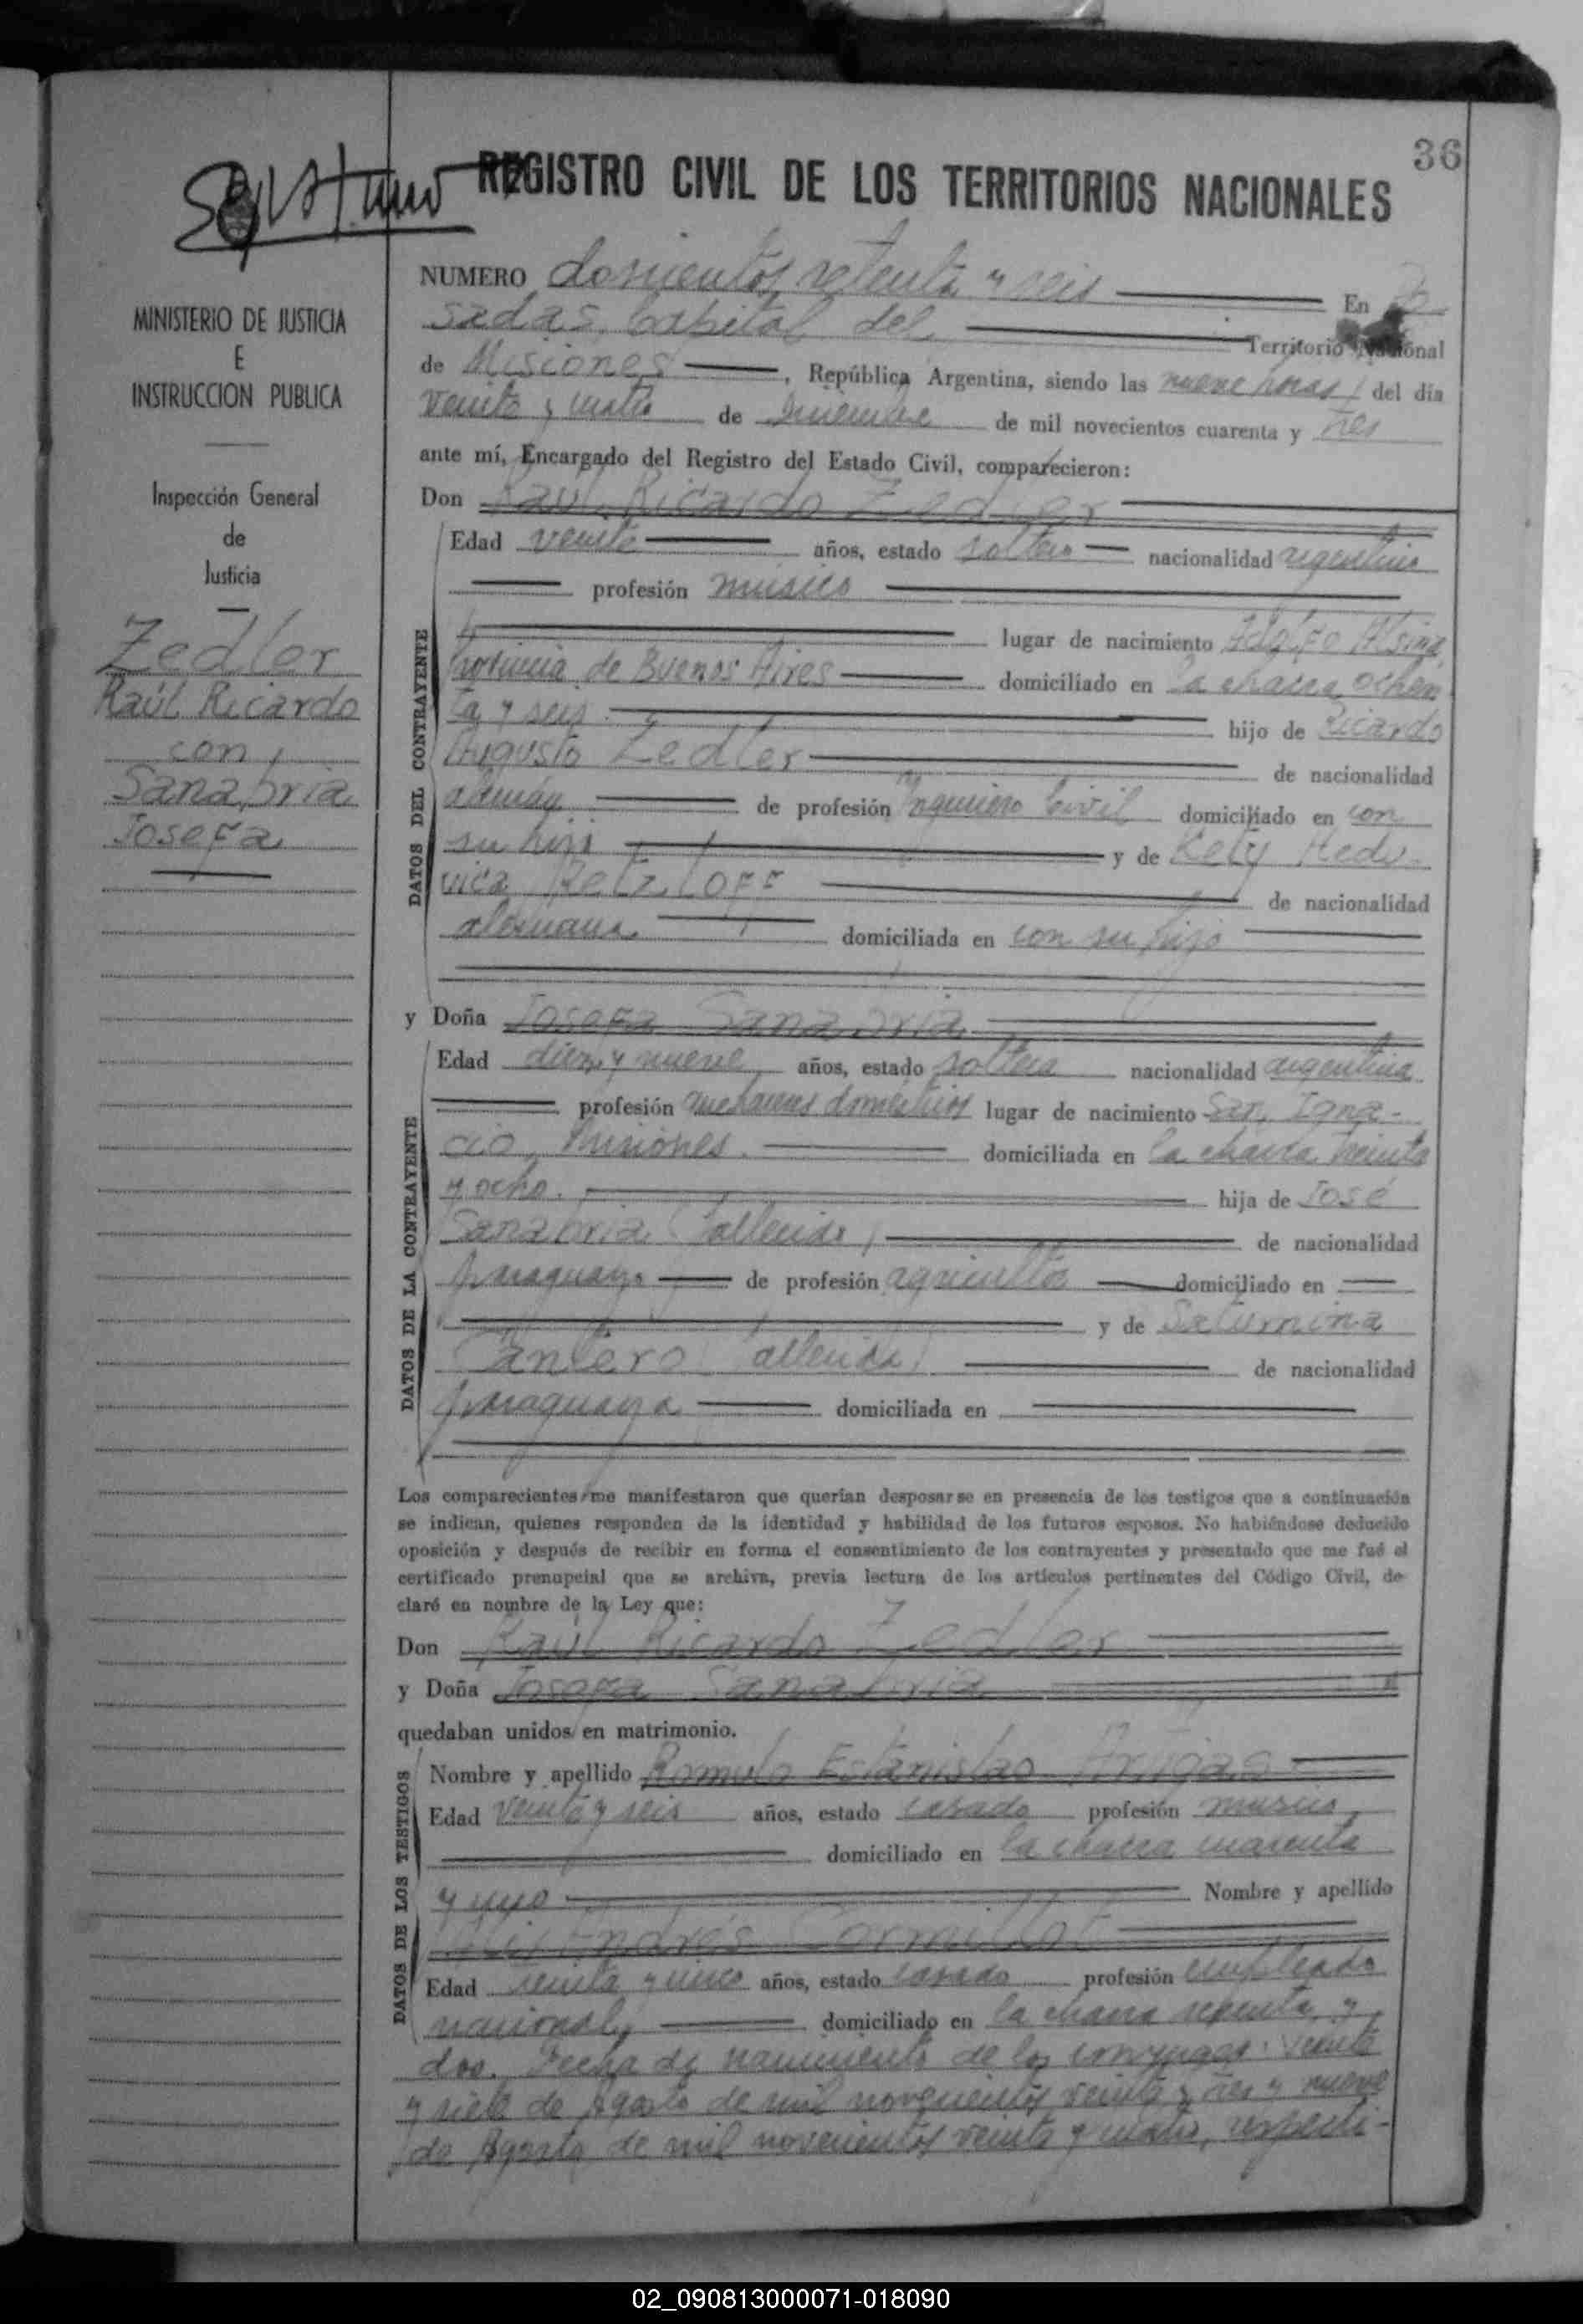 36
REGISTRO CIVIL DE LOS TERRITORIOS NACIONALES
MINISTERIO DE JUSTICIA
E
INSTRUCCION PUBLICA
Inspección General
de
Justicia
Zedler
Raúl Ricardo
con
Sanabria
Josefa
NUMERO doscientos setenta y seis En Po
sadas, Capital del Territorio Nacional
de Misiones, República Argentina, siendo las nueve horas del día
veinte y cuatro de Diciembre de mil novecientos cuarenta y tres
ante mí, Encargado del Registro del Estado Civil, comparecieron:
Don Raúl Ricardo Zedler
DATOS DEL CONTRAYENTE
Edad veinte años, estado soltero nacionalidad argentino
profesión músico
lugar de nacimiento Adolfo Alsina,
Provincia de Buenos Aires domiciliado en la chacra ochen
ta y seis. hijo de Ricardo
Augusto Zedler de nacionalidad
alemán de profesión Ingeniero Civil domiciliado en con
su hijo y de Kety Hedu-
vica Retzloff de nacionalidad
alemana domiciliada en con su hijo
y Doña Josefa Sanabria
DATOS DE LA CONTRAYENTE
Edad diez y nueve años, estado soltera nacionalidad argentina
profesión quehaceres domésticos lugar de nacimiento San Igna-
cio, Misiones. domiciliada en la chacra treinta
y ocho. hija de José
Sanabria (fallecido) de nacionalidad
paraguayo de profesión agricultor domiciliado en
y de Saturnina
Cantero (fallecida) de nacionalidad
paraguaya domiciliada en
Los comparecientes me manifestaron que querían desposarse en presencia de los testigos que a continuación
se indican, quienes responden de la identidad y habilidad de los futuros esposos. No habiéndose deducido
oposición y después de recibir en forma el consentimiento de los contrayentes y presentado que me fué el
certificado prenupcial que se archiva, previa lectura de los artículos pertinentes del Código Civil, de-
claré en nombre de la Ley que:
Don Raúl Ricardo Zedler
y Doña Josefa Sanabria
quedaban unidos en matrimonio.
DATOS DE LOS TESTIGOS
Nombre y apellido Romulo Estanislao Artigas
Edad veinte y seis años, estado casado profesión músico,
domiciliado en la chacra cuarenta
y uno Nombre y apellido
Andrés
Edad treinta y cinco años, estado casado profesión empleado
nacional, domiciliado en la chacra setenta y
dos. Fecha de nacimiento de los conyuges: veinte
y siete de Agosto de mil novecientos veinte y tres y nueve
de Agosto de mil novecientos veinte y cuatro, respecti-
02_090813000071-018090